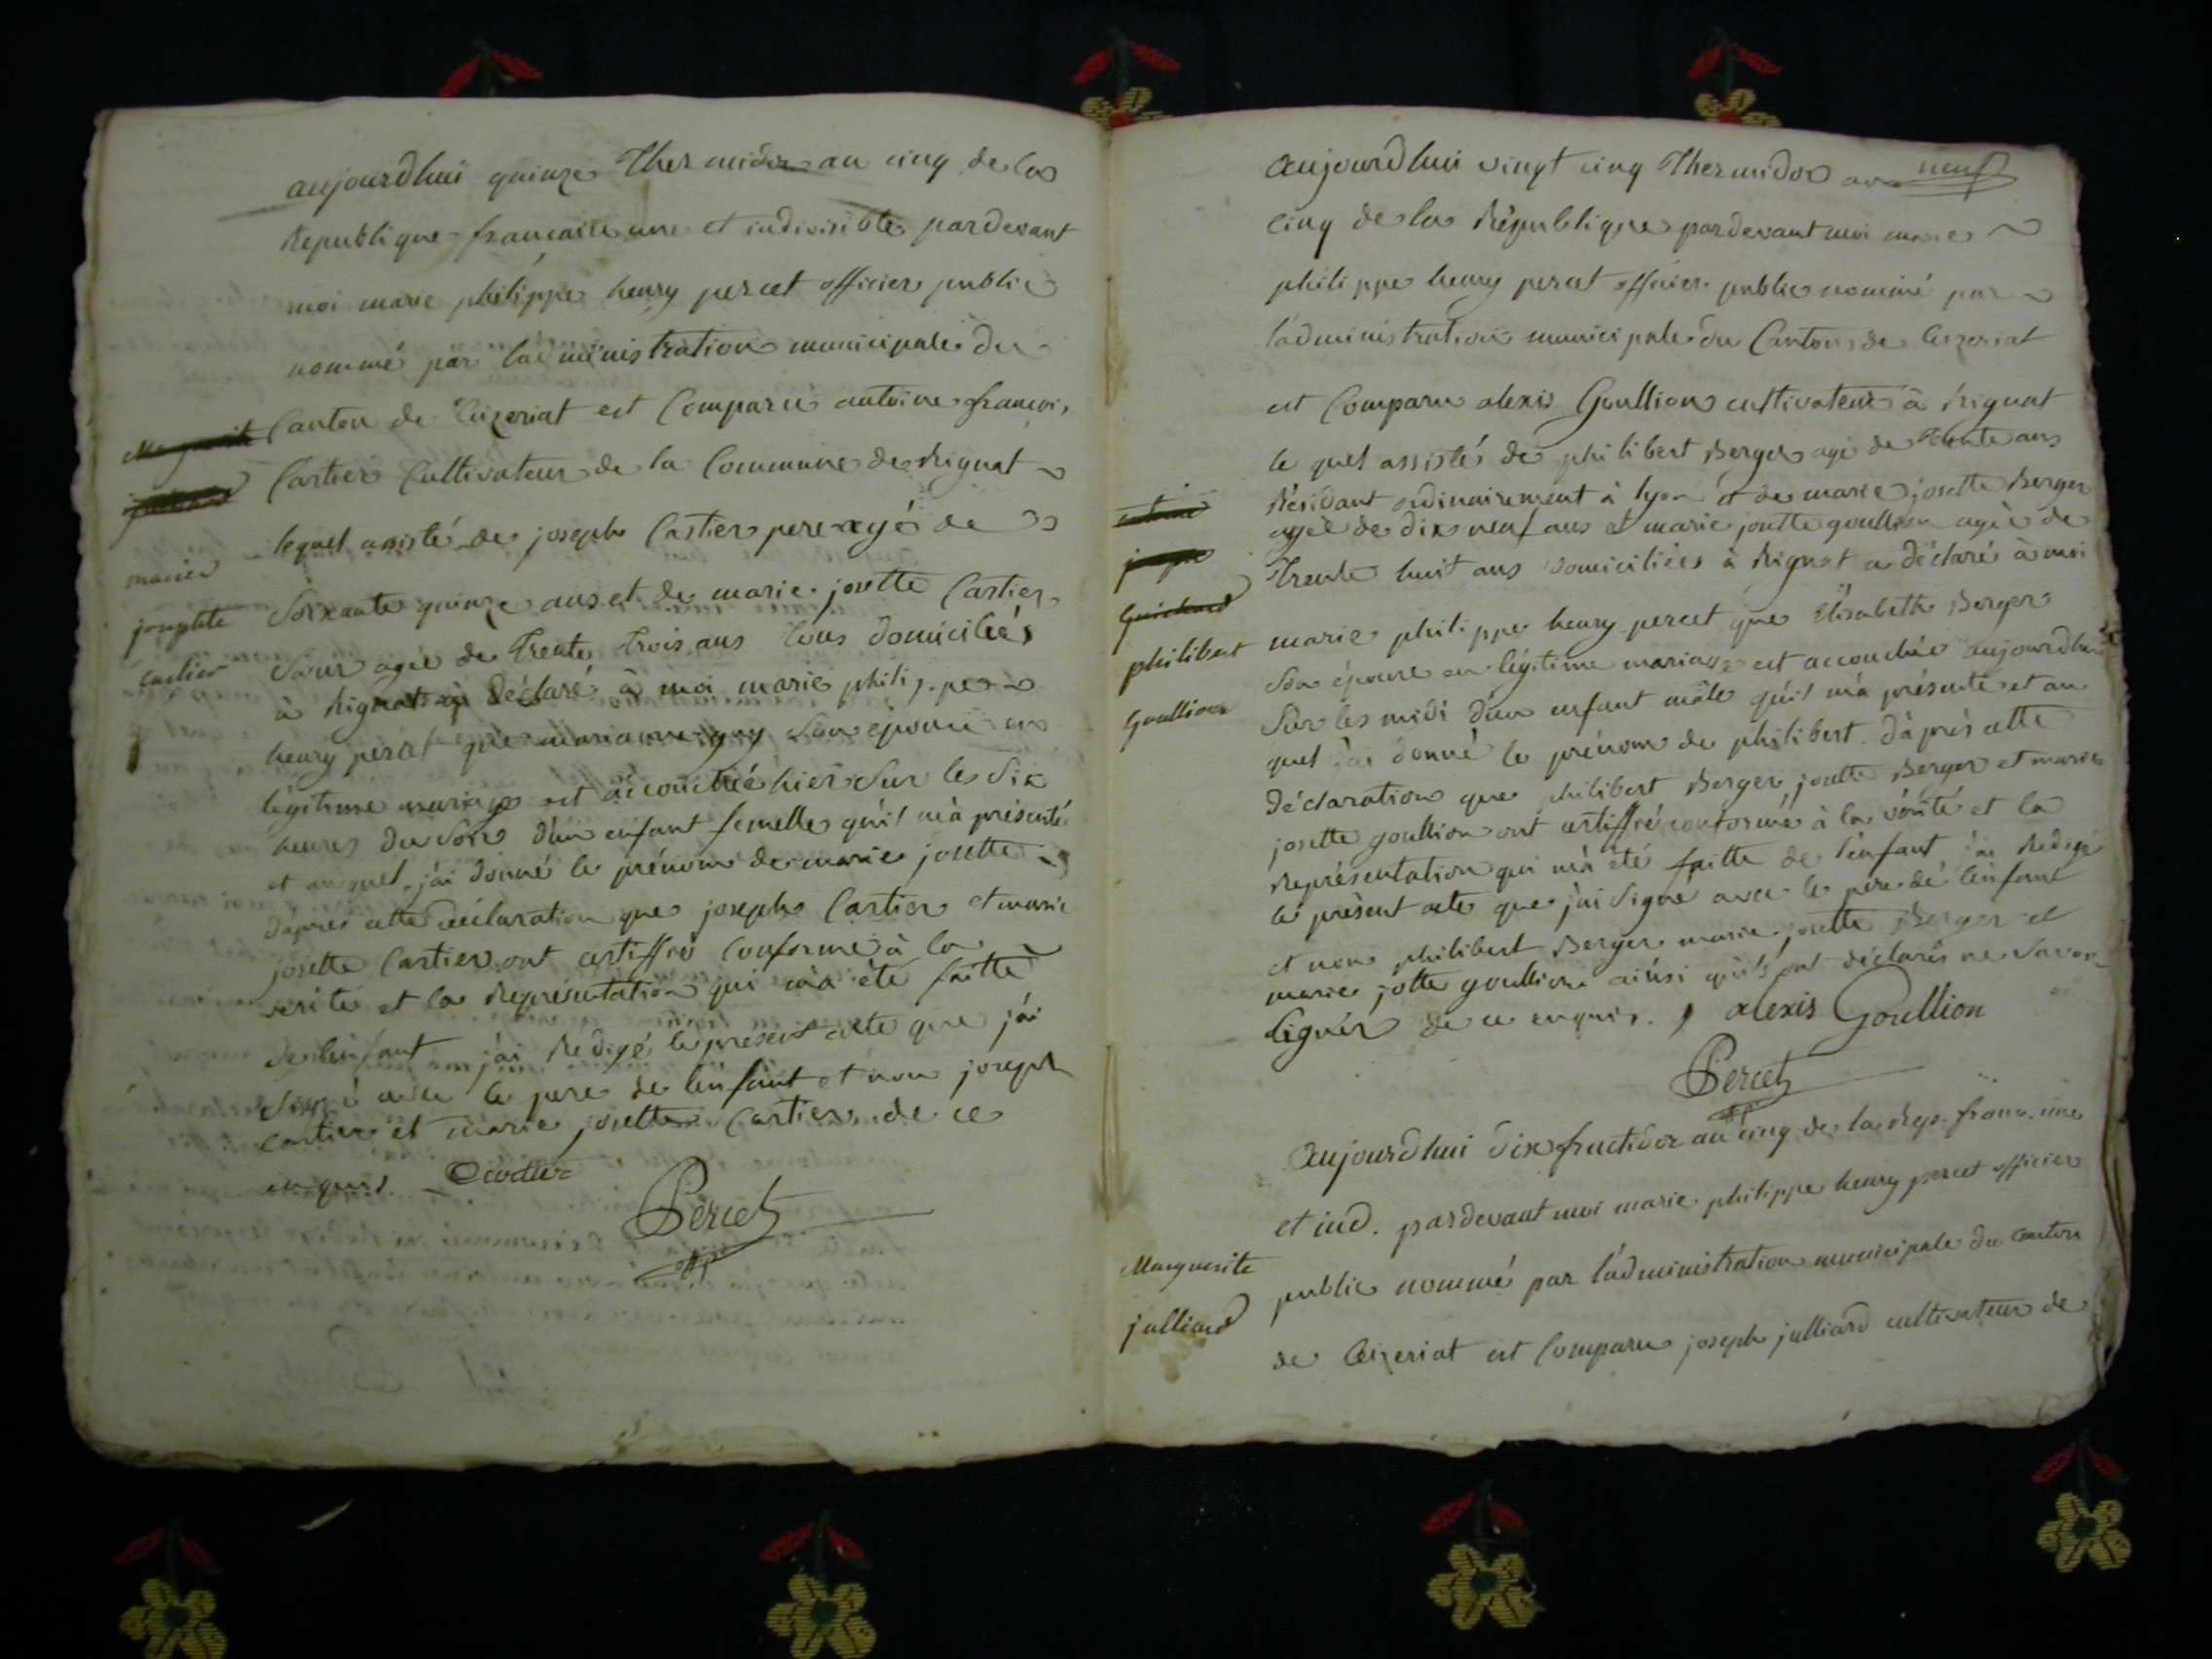 aujourdhui quinze Thermidor an cinq de la
Republique francaise une et indivisible pardevant
moi marie philippe henry percet officier public
nommé par l'administration municipale du
Canton de Ceizeriat est Comparu antoine francois
Cartier Cultivateur de la Commune de Rignat
lequel assisté de joseph Cartier pere agé de
Soixante quinze ans et de marie josette Cartier
Sœur agée de Trente Trois ans tous domiciliés
à Rignat a Déclaré à moi marie philippe
henry percet que marianne guy Son épouse en
légitime mariage est accouchée hier Sur les Six
heures du Soir d'un enfant femelle qu'il m'a présenté
et auquel j'ai donné le prénom de marie josette
d'après cette déclaration que joseph Cartier et marie
josette Cartier ont certiffié conforme à la
vérité et la Représentation qui m'a été faitte
de l'enfant j'ai Redigé le présent acte que j'ai
Signé avec le pere de l'enfant et non joseph
Cartier et marie josette Cartier de ce
enquis.
Percet
marie
josephte
cartier
neuf
aujourdhui vingt cinq Thermidor an
cinq de la République pardevant moi marie
philippe henry percet officier public nommé par
l'administration municipale du Canton de Ceizeriat
est Comparu alexis Goullion cultivateur à Rignat
le quel assisté de philibert Berger agé de Trente ans
Résidant ordinairement à lyon et de marie josette Berger
agée de dix neuf ans et marie josette goullion agée de
Trente huit ans domiciliées à Rignat a déclaré à moi
marie philippe henry percet que Elisabeth Berger
Son épouse en légitime mariage est accouchée aujourdhui
Sur les midi d'un enfant mâle qu'il m'a présenté et au
quel j'ai donné le prénom de philibert. d'après cette
Déclaration que philibert Berger josette Berger et marie
josette goullion ont certiffié conforme à la vérité et la
Représentation qui m'a été faitte de l'enfant j'ai Redigé
le présent acte que j'ai Signé avec le pere de l'enfant
et non philibert Berger marie josette Berger et
marie jotte goullion ainsi qu'ils ont déclarés ne Savoir
Signer de ce enquis. alexis Goullion
Percet
philibert
Goullion
aujourdhui dix fructidor an cinq de la Rep. franc. une
et ind. pardevant moi marie philippe henry percet officier
public nommé par l'administration municipale du canton
de Ceizeriat est Comparu joseph julliard cultivateur de
Marguerite
julliard